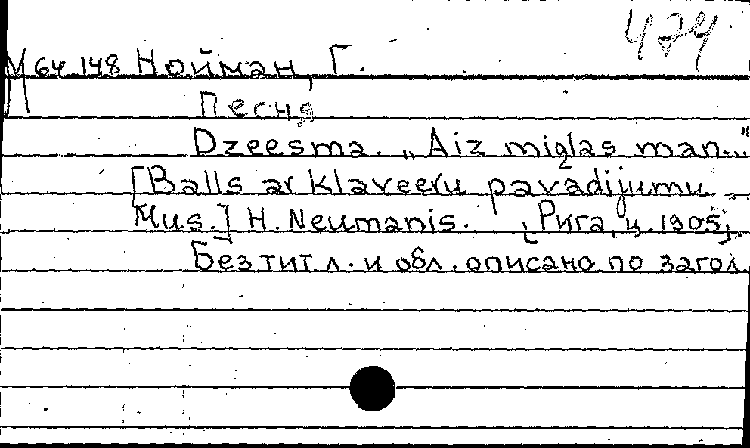 474
М 64 148 Нойман, Г.
Песня
Dzeesma. „Aiz miglas man..."
[Balls ar klaveeru pavadijumu
Mus.] H. Neumanis. [Рига, ц. 1905].
Без тит л. и обл. описано по загол.